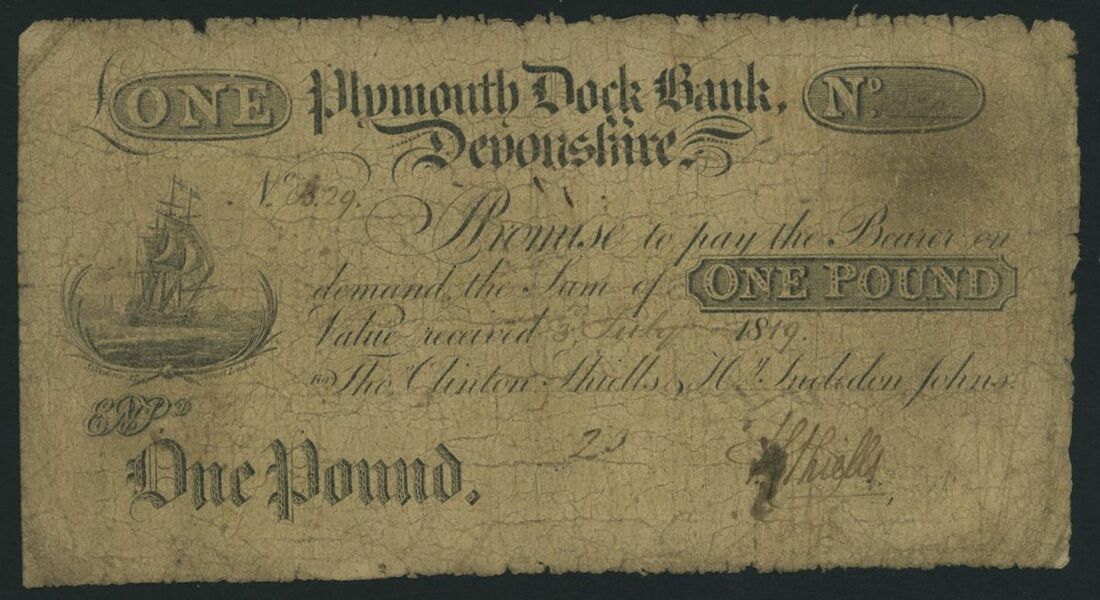 £ ONE Plymouth Dock Bank, Nº.
Devonshire.
Nº 29.
I Promise to pay the Bearer on
demand, the Sum of ONE POUND
Value received 3 July 1819.
for Thoˢ Clinton Shiells & Hʸ Incledon Johns.
Entᴰ
One Pound. 23 Shiells